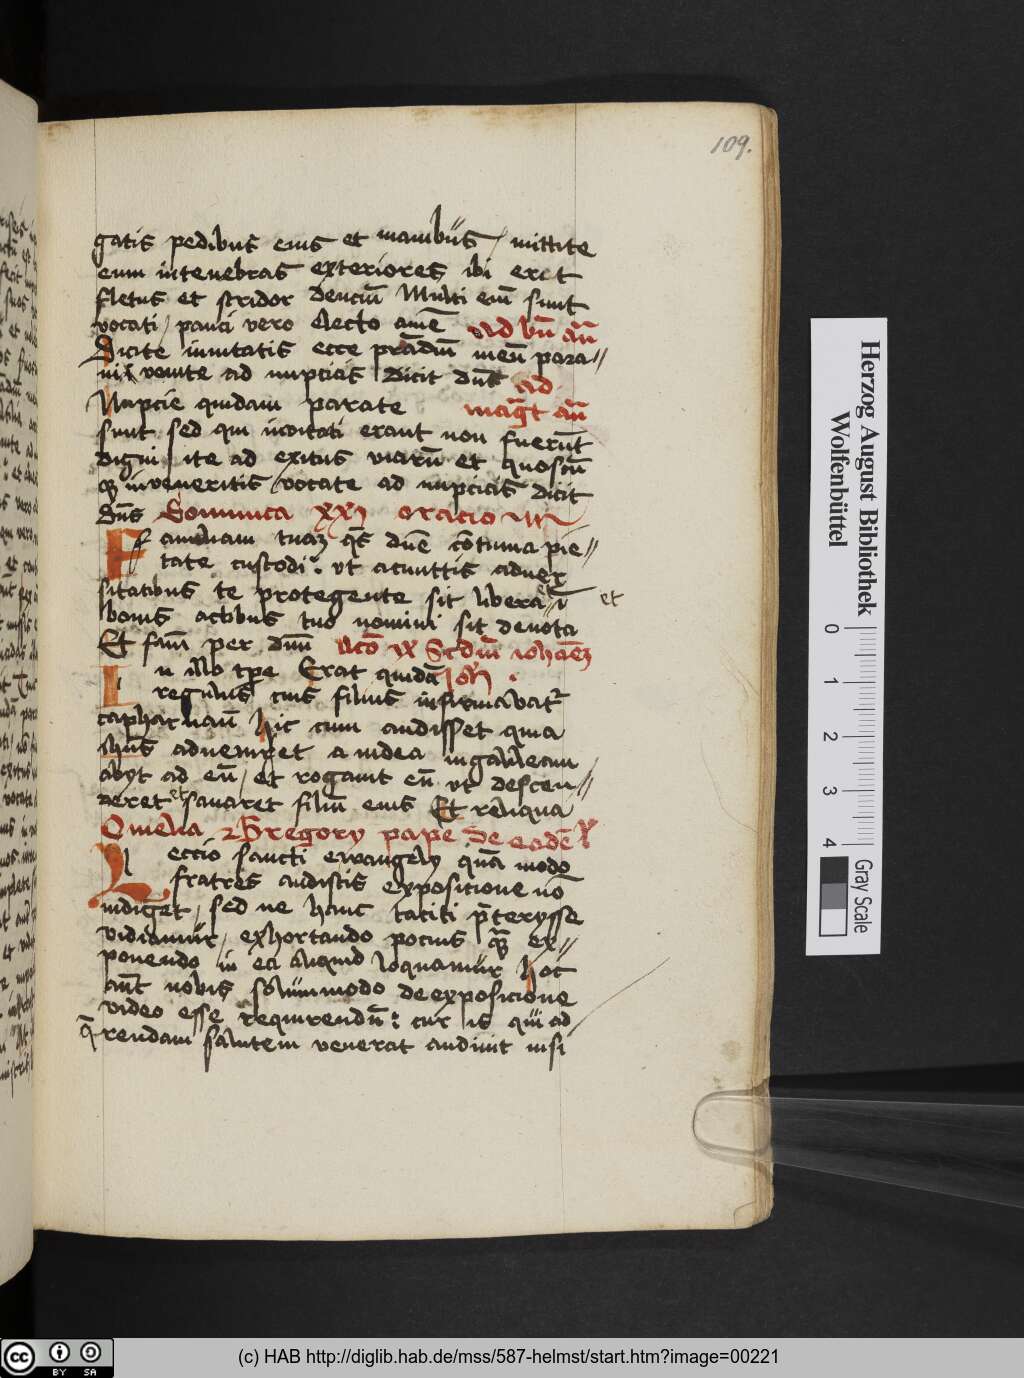 109.
gatis pedibus eius et manibus / mittite
eum in tenebras exteriores ibi erit
fletus et stridor denciu͞ Multi em̄ sunt
vocati / pauci vero electo amē ad bn̄ an̄
Dicite invitatis ecce prādiu͞ meū para//
ui venite ad nupcias dicit dn̄s ad
Nupcie quidam parate mag̅t an̄
sunt sed qui invitati erant non fuerūt
digni ite ad exitus viarū et quoscū
qꝫ inveneritis vocate ad nupcias dicit
dn̄s Dominica xxj oracio
Familiam tuaꝫ qs̄ dn̄e cōtinua pie//
tate custodi: vt a cunttis aduer
sitatibus te protegente sit libera ī et
bonis actibus tuo nomini sit deuota
Et fam̄ per dnm̄ lc̄o Scdm̄ iohāeꝫ
In illo tp̄e Erat quidā Ioh̄
regulus cuius filius infirmavat᷑
capharnau͞ hic cum audisset quia
ih̄us adueniret a iudea in galileam
abijt ad eu͞ / et rogauit eū vt descen//
deret et sanaret filiu͞ eius Et reliqua
Omelia Gregory pape de eadē l̄
Leccio sancti ewangely quā modo
fratres audistis exposicione nō
indiget / sed ne hanc taciti p̄terysse
vidiamur / exhortando pocius qꝫ ex//
ponendo in ea aliquid loquamur hoc
aūt nobis solummodo de exposicione
video esse requirendū: cur is qui ad
q̄rendam salutem venerat audiuit nisi
Herzog August Bibliothek
Wolfenbüttel
0
1
2
3
4
Gray Scale
cc
BY SA
(c) HAB http://diglib.hab.de/mss/587-helmst/start.htm?image=00221